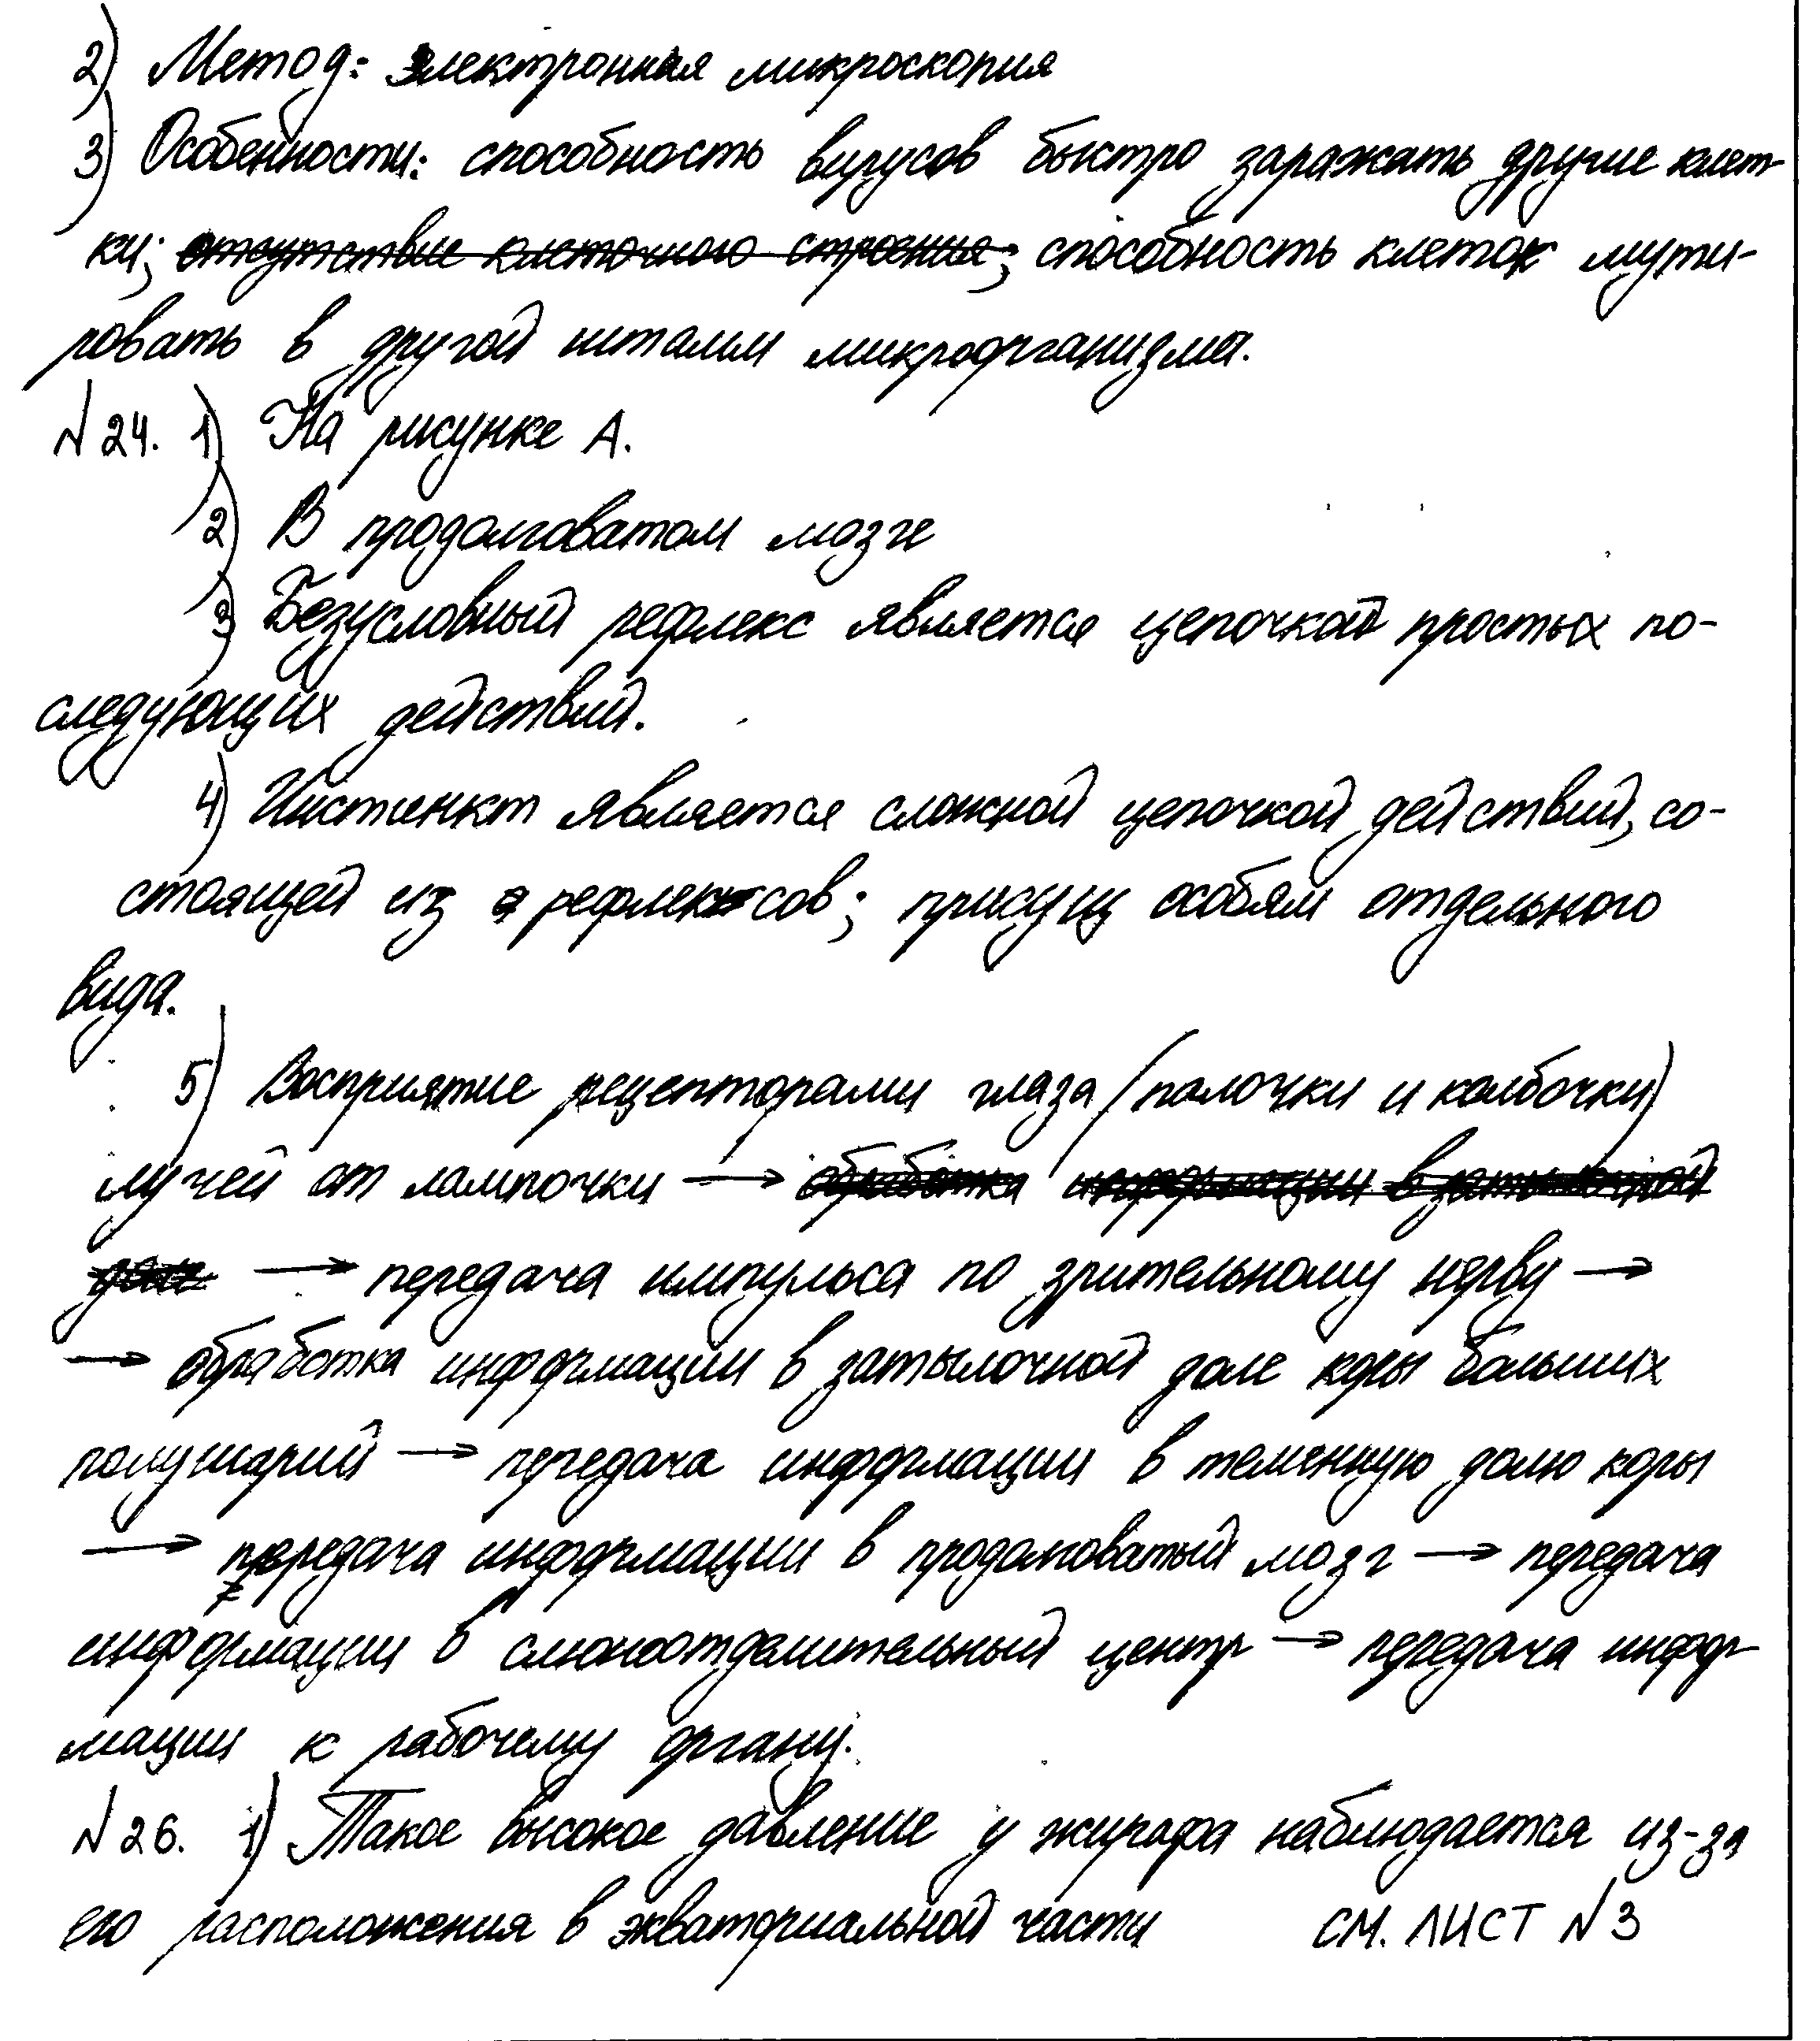 2) Метод: электронная микроскопия
3) Особенности: способность вирусов быстро заражать другие клет-
ки; отсутствие клеточного строения; способность клеток мути-
ровать в другой штамм микроорганизма.
№24. 1) На рисунке А.
2) В продолговатом мозге
3) Безусловный рефлекс является цепочкой простых по-
следующих действий.
4) Инстинкт является сложной цепочкой действий, со-
стоящей из рефлексов; присущ особям отдельного
вида.
5) Восприятие рецепторами глаза (палочки и колбочки)
лучей от лампочки → обработка информации в затылочной
доле → передача импульса по зрительному нерву →
→ обработка информации в затылочной доле коры больших
полушарий → передача информации в теменную долю коры
→ передача информации в продолговатый мозг → передача
информации в слюноотделительный центр → передача инфор-
мации к рабочему органу.
№26. 1) Такое высокое давление у жирафа наблюдается из-за
его расположения в экваториальной части СМ. ЛИСТ №3